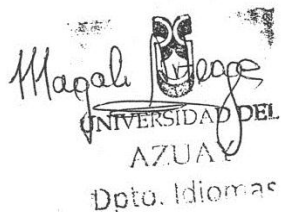 Magali
UNIVERSIDAD DEL
AZUAY
Dpto. Idiomas